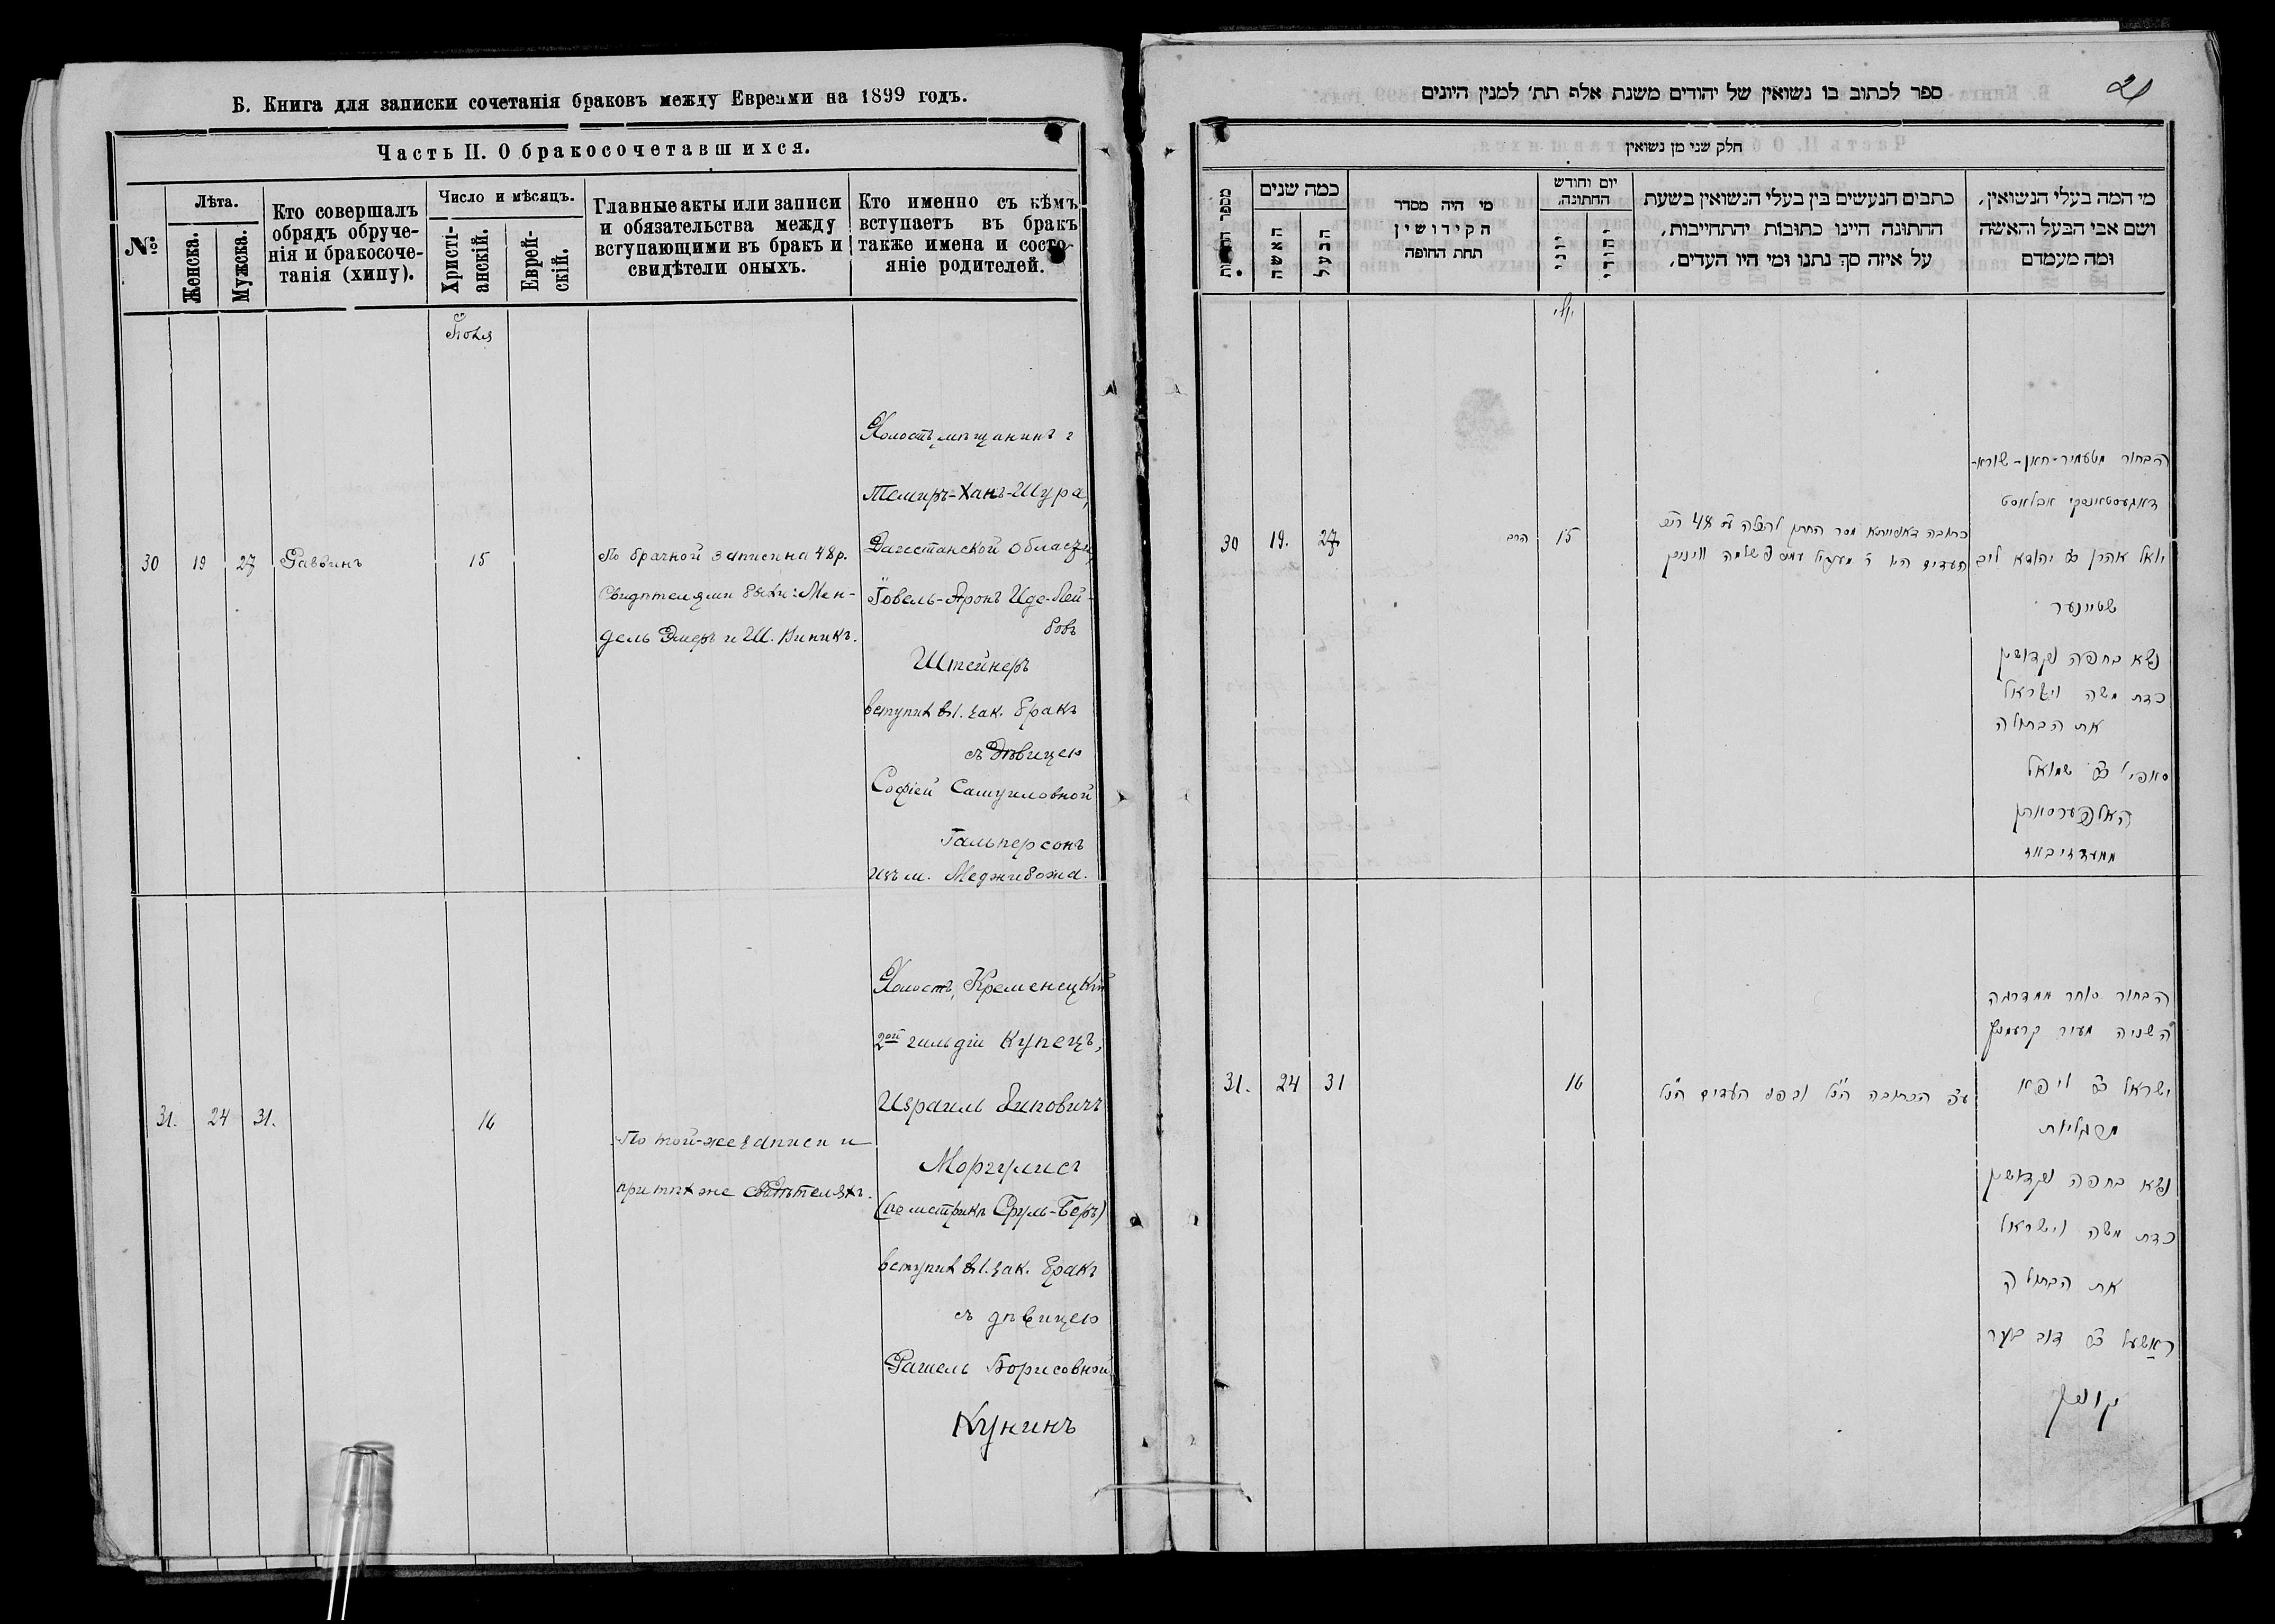 Б. Книга для записки сочетанія браковъ между Евреями на 1899 годъ.
Часть II. О бракосочетавшихся.
№
Лѣта.
Женска.
Мужска.
Кто совершалъ
обрядъ обруче-
нія и бракосоче-
танія (хипу).
Число и мѣсяцъ.
Христі-
анскій.
Еврей-
скій.
Главные акты или записи
и обязательства между
вступающими въ бракъ и
свидѣтели оныхъ.
Кто именно съ кѣмъ
вступаетъ въ бракъ
также имена и состо-
яніе родителей.
30
19
27
Раввинъ
15
По брачной записи на 48 р.
Свидѣтелями были: Мен-
дель Эмеръ и Ш. Виникъ.
Холостъ, мѣщанинъ г
Темиръ-Ханъ-Шура,
Дагестанской области,
Іовель-Аронъ Иде-Лей-
бовъ
Штейнеръ
вступилъ въ 1. зак. бракъ
съ дѣвицею
Софіей Самуиловной
Гальперсонъ
изъ м. Меджибожа.
31.
24
31.
16
По той-же записи и
при тѣхъ же свидѣтеляхъ.
Холостъ, Кременецкій
2ой гильдіи купецъ,
Израиль Зиновичъ
Моргулисъ
(по метрикѣ Сруль-Беръ)
вступилъ въ 1. зак. бракъ
съ дѣвицею
Рашель Борисовной
Кунинъ
21
ספר לכתוב בו נשואין של יהודים משנת אלף תת׳ למנין היונים
חלק שני מן נשואין
כמה שנים
האשה
הבעל
מי היה מסדר
הקידושין
תחת החופה
יום וחודש
החתונה.
יוני
יהודי
כתבים הנעשים בין בעלי הנשואין בשעת
החתונה היינו כתובות והתחייבות,
על איזה סך נתנו ומי היו העדים.
מי המה בעלי הנשואין,
ושם אבי הבעל והאשה
ומה מעמדם
יולי
30
19.
27
הרב
15
הבחור מטעמיר-חאן-שורא-
דאגעסטאנסקי אבלאסט
יואל אהרן ב״ר יהודא לייב
שטיינער
נשא בחפה וקדושין
כדת משה וישראל
את הבתולה
סופי׳ ב״ר שמואל
האלפערסאהן
ממעדזיבוז
31.
24
31
16
עפ הכתובה הנ״ל ובפני העדים הנ״ל
הבחור סוחר ממדרגה
השניה מעיר קרעמניץ
ישראל ב״ר זיסא
מרגליות
נשא בחפה וקדושין
כדת משה וישראל
את הבתולה
ראשעל ב״ר דוב בער
קונין